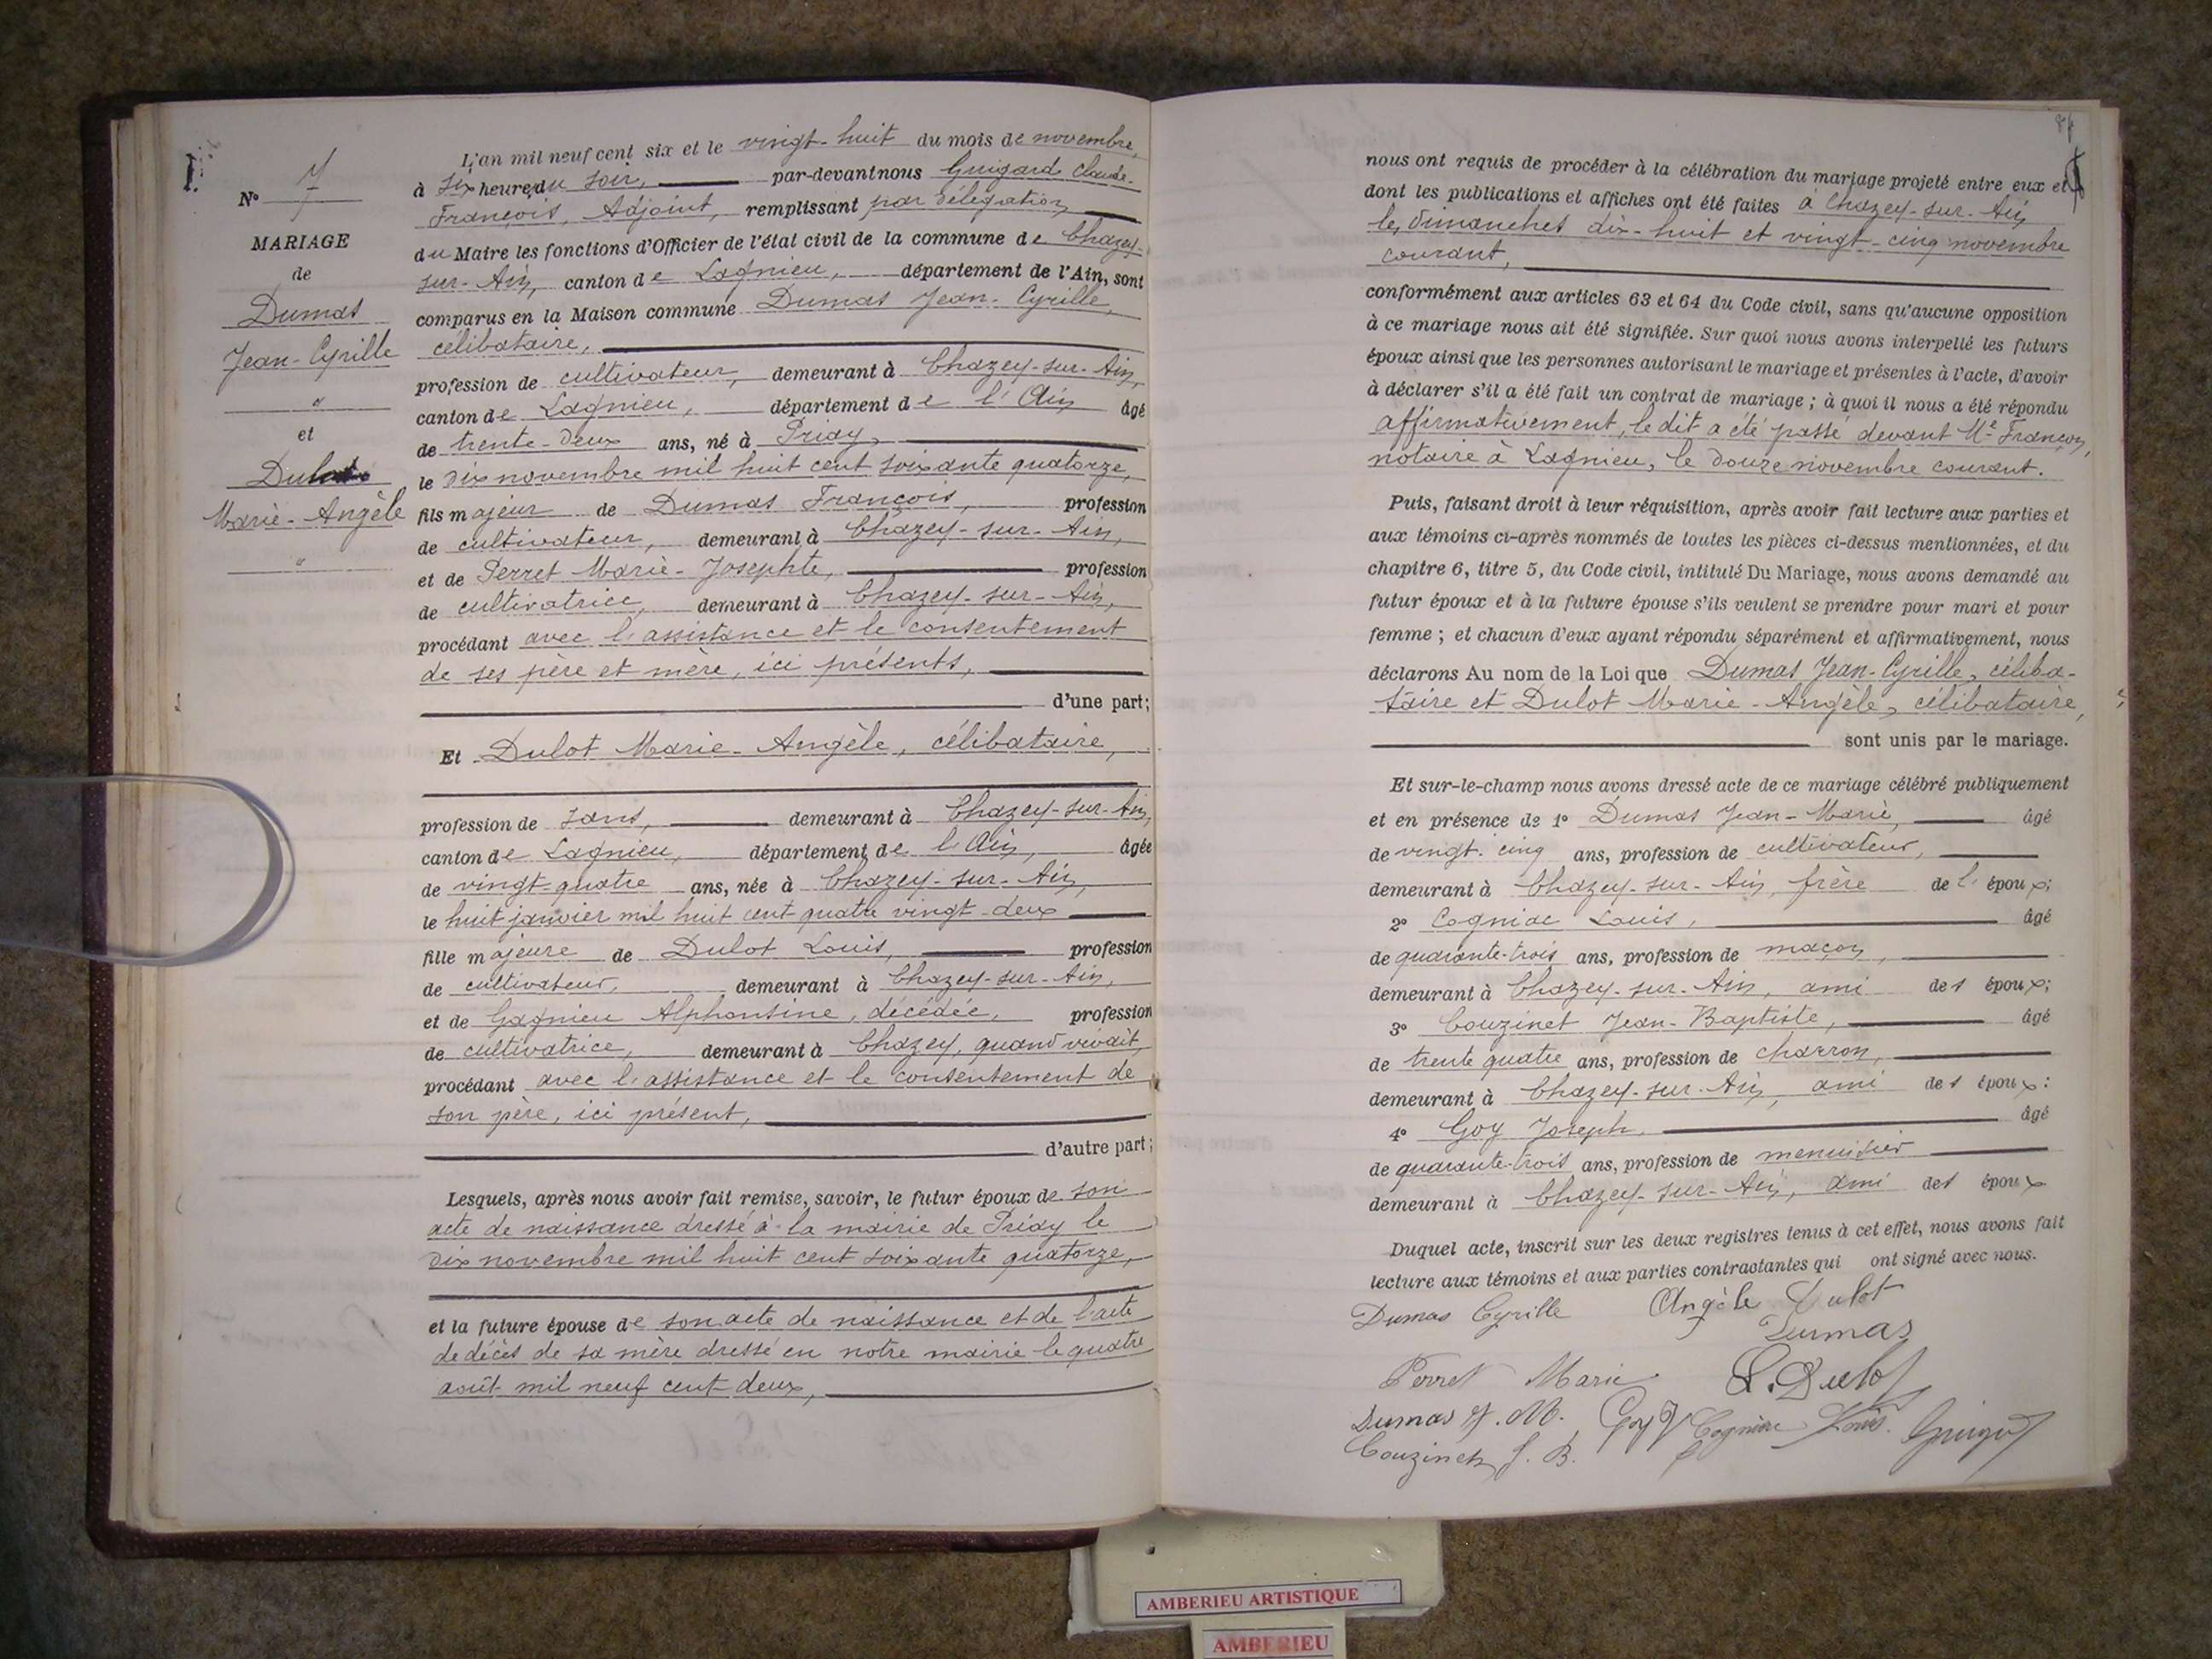 N° 7
MARIAGE
de
Dumas
Jean-Cyrille
"
et
Dulot
Marie-Angèle
"
L'an mil neuf cent six et le vingt-huit du mois de novembre,
à six heures du soir, par-devant nous Guigard Claude-
François, Adjoint, remplissant par délégation
du Maire les fonctions d'Officier de l'état civil de la commune de Chazey-
sur-Ain, canton de Lagnieu, département de l'Ain, sont
comparus en la Maison commune Dumas Jean-Cyrille,
célibataire,
profession de cultivateur, demeurant à Chazey-sur-Ain,
canton de Lagnieu, département de l'Ain âgé
de trente-deux ans, né à Priay,
le dix novembre mil huit cent soixante quatorze,
fils majeur de Dumas François, profession
de cultivateur, demeurant à Chazey-sur-Ain,
et de Perret Marie-Josephte, profession
de cultivatrice, demeurant à Chazey-sur-Ain,
procédant avec l'assistance et le consentement
de ses père et mère, ici présents,
d'une part;
Et Dulot Marie-Angèle, célibataire,
profession de sans, demeurant à Chazey-sur-Ain,
canton de Lagnieu, département de l'Ain, âgée
de vingt-quatre ans, née à Chazey-sur-Ain,
le huit janvier mil huit cent quatre vingt-deux
fille majeure de Dulot Louis, profession
de cultivateur, demeurant à Chazey-sur-Ain,
et de Gagnieu Alphonsine, décédée, profession
de cultivatrice, demeurant à Chazey, quand vivait,
procédant avec l'assistance et le consentement de
son père, ici présent,
d'autre part;
Lesquels, après nous avoir fait remise, savoir, le futur époux de son
acte de naissance dressé à la mairie de Priay le
dix novembre mil huit cent soixante quatorze,
et la future épouse de son acte de naissance et de l'acte
de décès de sa mère dressé en notre mairie le quatre
août mil neuf cent deux,
nous ont requis de procéder à la célébration du mariage projeté entre eux et
dont les publications et affiches ont été faites à Chazey-sur-Ain
les dimanches dix-huit et vingt-cinq novembre
courant,
conformément aux articles 63 et 64 du Code civil, sans qu'aucune opposition
à ce mariage nous ait été signifiée. Sur quoi nous avons interpellé les futurs
époux ainsi que les personnes autorisant le mariage et présentes à l'acte, d'avoir
à déclarer s'il a été fait un contrat de mariage; à quoi il nous a été répondu
affirmativement, le dit a été passé devant Me Françon,
notaire à Lagnieu, le douze novembre courant.
Puis, faisant droit à leur réquisition, après avoir fait lecture aux parties et
aux témoins ci-après nommés de toutes les pièces ci-dessus mentionnées, et du
chapitre 6, titre 5, du Code civil, intitulé Du Mariage, nous avons demandé au
futur époux et à la future épouse s'ils veulent se prendre pour mari et pour
femme; et chacun d'eux ayant répondu séparément et affirmativement, nous
déclarons Au nom de la Loi que Dumas Jean-Cyrille, céliba-
taire et Dulot Marie-Angèle, célibataire,
sont unis par le mariage.
Et sur-le-champ nous avons dressé acte de ce mariage célébré publiquement
et en présence de 1° Dumas Jean-Marie, âgé
de vingt-cinq ans, profession de cultivateur,
demeurant à Chazey-sur-Ain, frère de l'époux;
2° Cogniac Louis, âgé
de quarante-trois ans, profession de maçon,
demeurant à Chazey-sur-Ain, ami des époux;
3° Couzinet Jean-Baptiste, âgé
de trente quatre ans, profession de charron,
demeurant à Chazey-sur-Ain, ami des époux:
4° Goy Joseph, âgé
de quarante-trois ans, profession de menuisier
demeurant à Chazey-sur-Ain, ami des époux
Duquel acte, inscrit sur les deux registres tenus à cet effet, nous avons fait
lecture aux témoins et aux parties contractantes qui ont signé avec nous.
Dumas Cyrille Angèle Dulot
Dumas
Perret Marie L. Dulot
Dumas J. M. Goy J Cogniac Louis. Guigard
Couzinet J. B.
AMBERIEU ARTISTIQUE
AMBERIEU